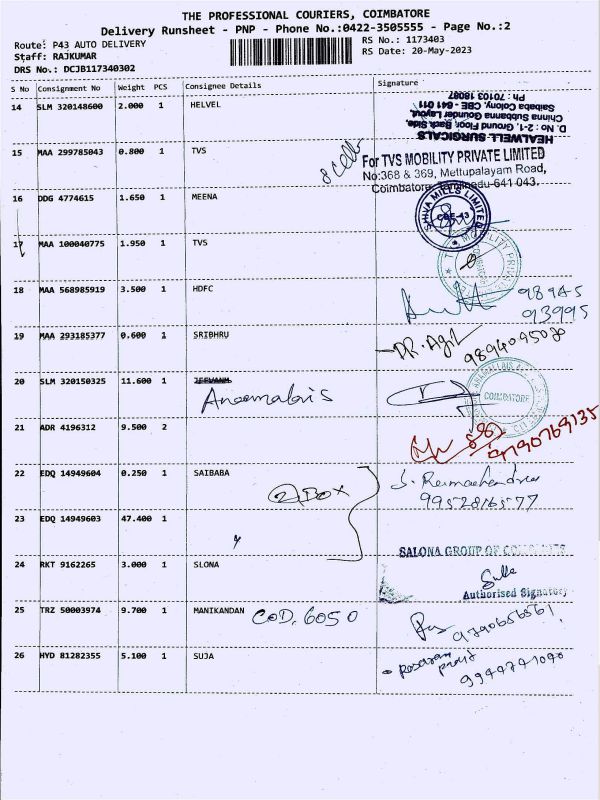 THE PROFESSIONAL COURIERS, COIMBATORE
Delivery Runsheet - PNP - Phone No.:0422-3505555 - Page No.:2
Route: P43 AUTO DELIVERY
RS No.: 1173403
Staff: RAJKUMAR
RS Date: 20-May-2023
DRS No.: DCJB117340302
S No Consignment No Weight PCS Consignee Details Signature
14 SLM 320148600 2.000 1 HELVEL
HEALWELL SURGICALS
D. No : 2-1, Ground Floor, Back Side,
Chinna Subbanna Gounder Layout,
Saibaba Colony, CBE - 641 011
Ph : 70103 18087
15 MAA 299785043 0.800 1 TVS
8 cells
For TVS MOBILITY PRIVATE LIMITED
No:368 & 369, Mettupalayam Road,
Coimbatore, Tamilnadu-641 043.
16 DDG 4774615 1.650 1 MEENA
SHIVA MILLS LIMITED
CBE-43
17 MAA 100040775 1.950 1 TVS
MOBILITY PRIVATE
18 MAA 568985919 3.500 1 HDFC
98945
93995
19 MAA 293185377 0.600 1 SRIBHRU
DR. Agil
9894095080
20 SLM 320150325 11.600 1
Anaamalais
ANAMALLAIS
COIMBATORE
21 ADR 4196312 9.500 2
9790769135
22 EDQ 14949604 0.250 1 SAIBABA
2 BOX
S. Ramachandra
9952816577
23 EDQ 14949603 47.400 1
24 RKT 9162265 3.000 1 SLONA
SALONA GROUP OF
Authorised Signatory
25 TRZ 50003974 9.700 1 MANIKANDAN
COD. 6050
9790656561
26 HYD 81282355 5.100 1 SUJA
9944741090